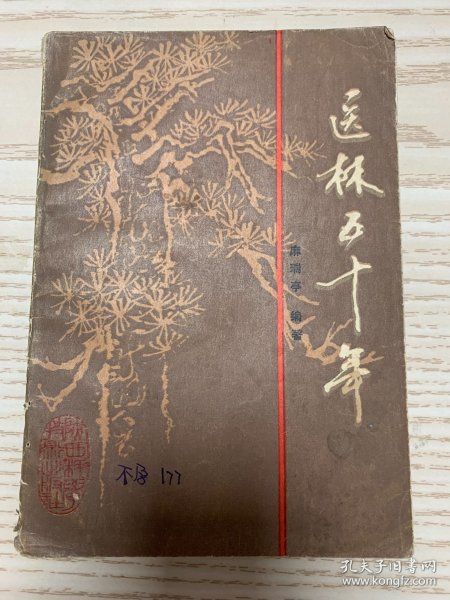 医林五十年
麻瑞亭 编著
不孕 177
孔夫子旧书网
www.kongfz.com